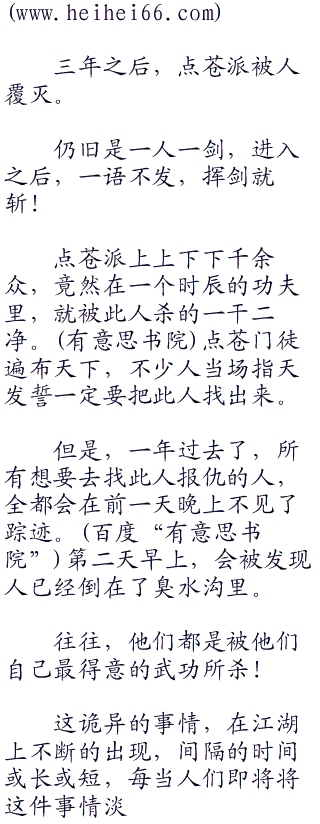 (www.heihei66.com)
三年之后，点苍派被人
覆灭。
仍旧是一人一剑，进入
之后，一语不发，挥剑就
斩！
点苍派上上下下千余
众，竟然在一个时辰的功夫
里，就被此人杀的一干二
净。(有意思书院)点苍门徒
遍布天下，不少人当场指天
发誓一定要把此人找出来。
但是，一年过去了，所
有想要去找此人报仇的人，
全都会在前一天晚上不见了
踪迹。(百度“有意思书
院”)第二天早上，会被发现
人已经倒在了臭水沟里。
往往，他们都是被他们
自己最得意的武功所杀！
这诡异的事情，在江湖
上不断的出现，间隔的时间
或长或短，每当人们即将将
这件事情淡